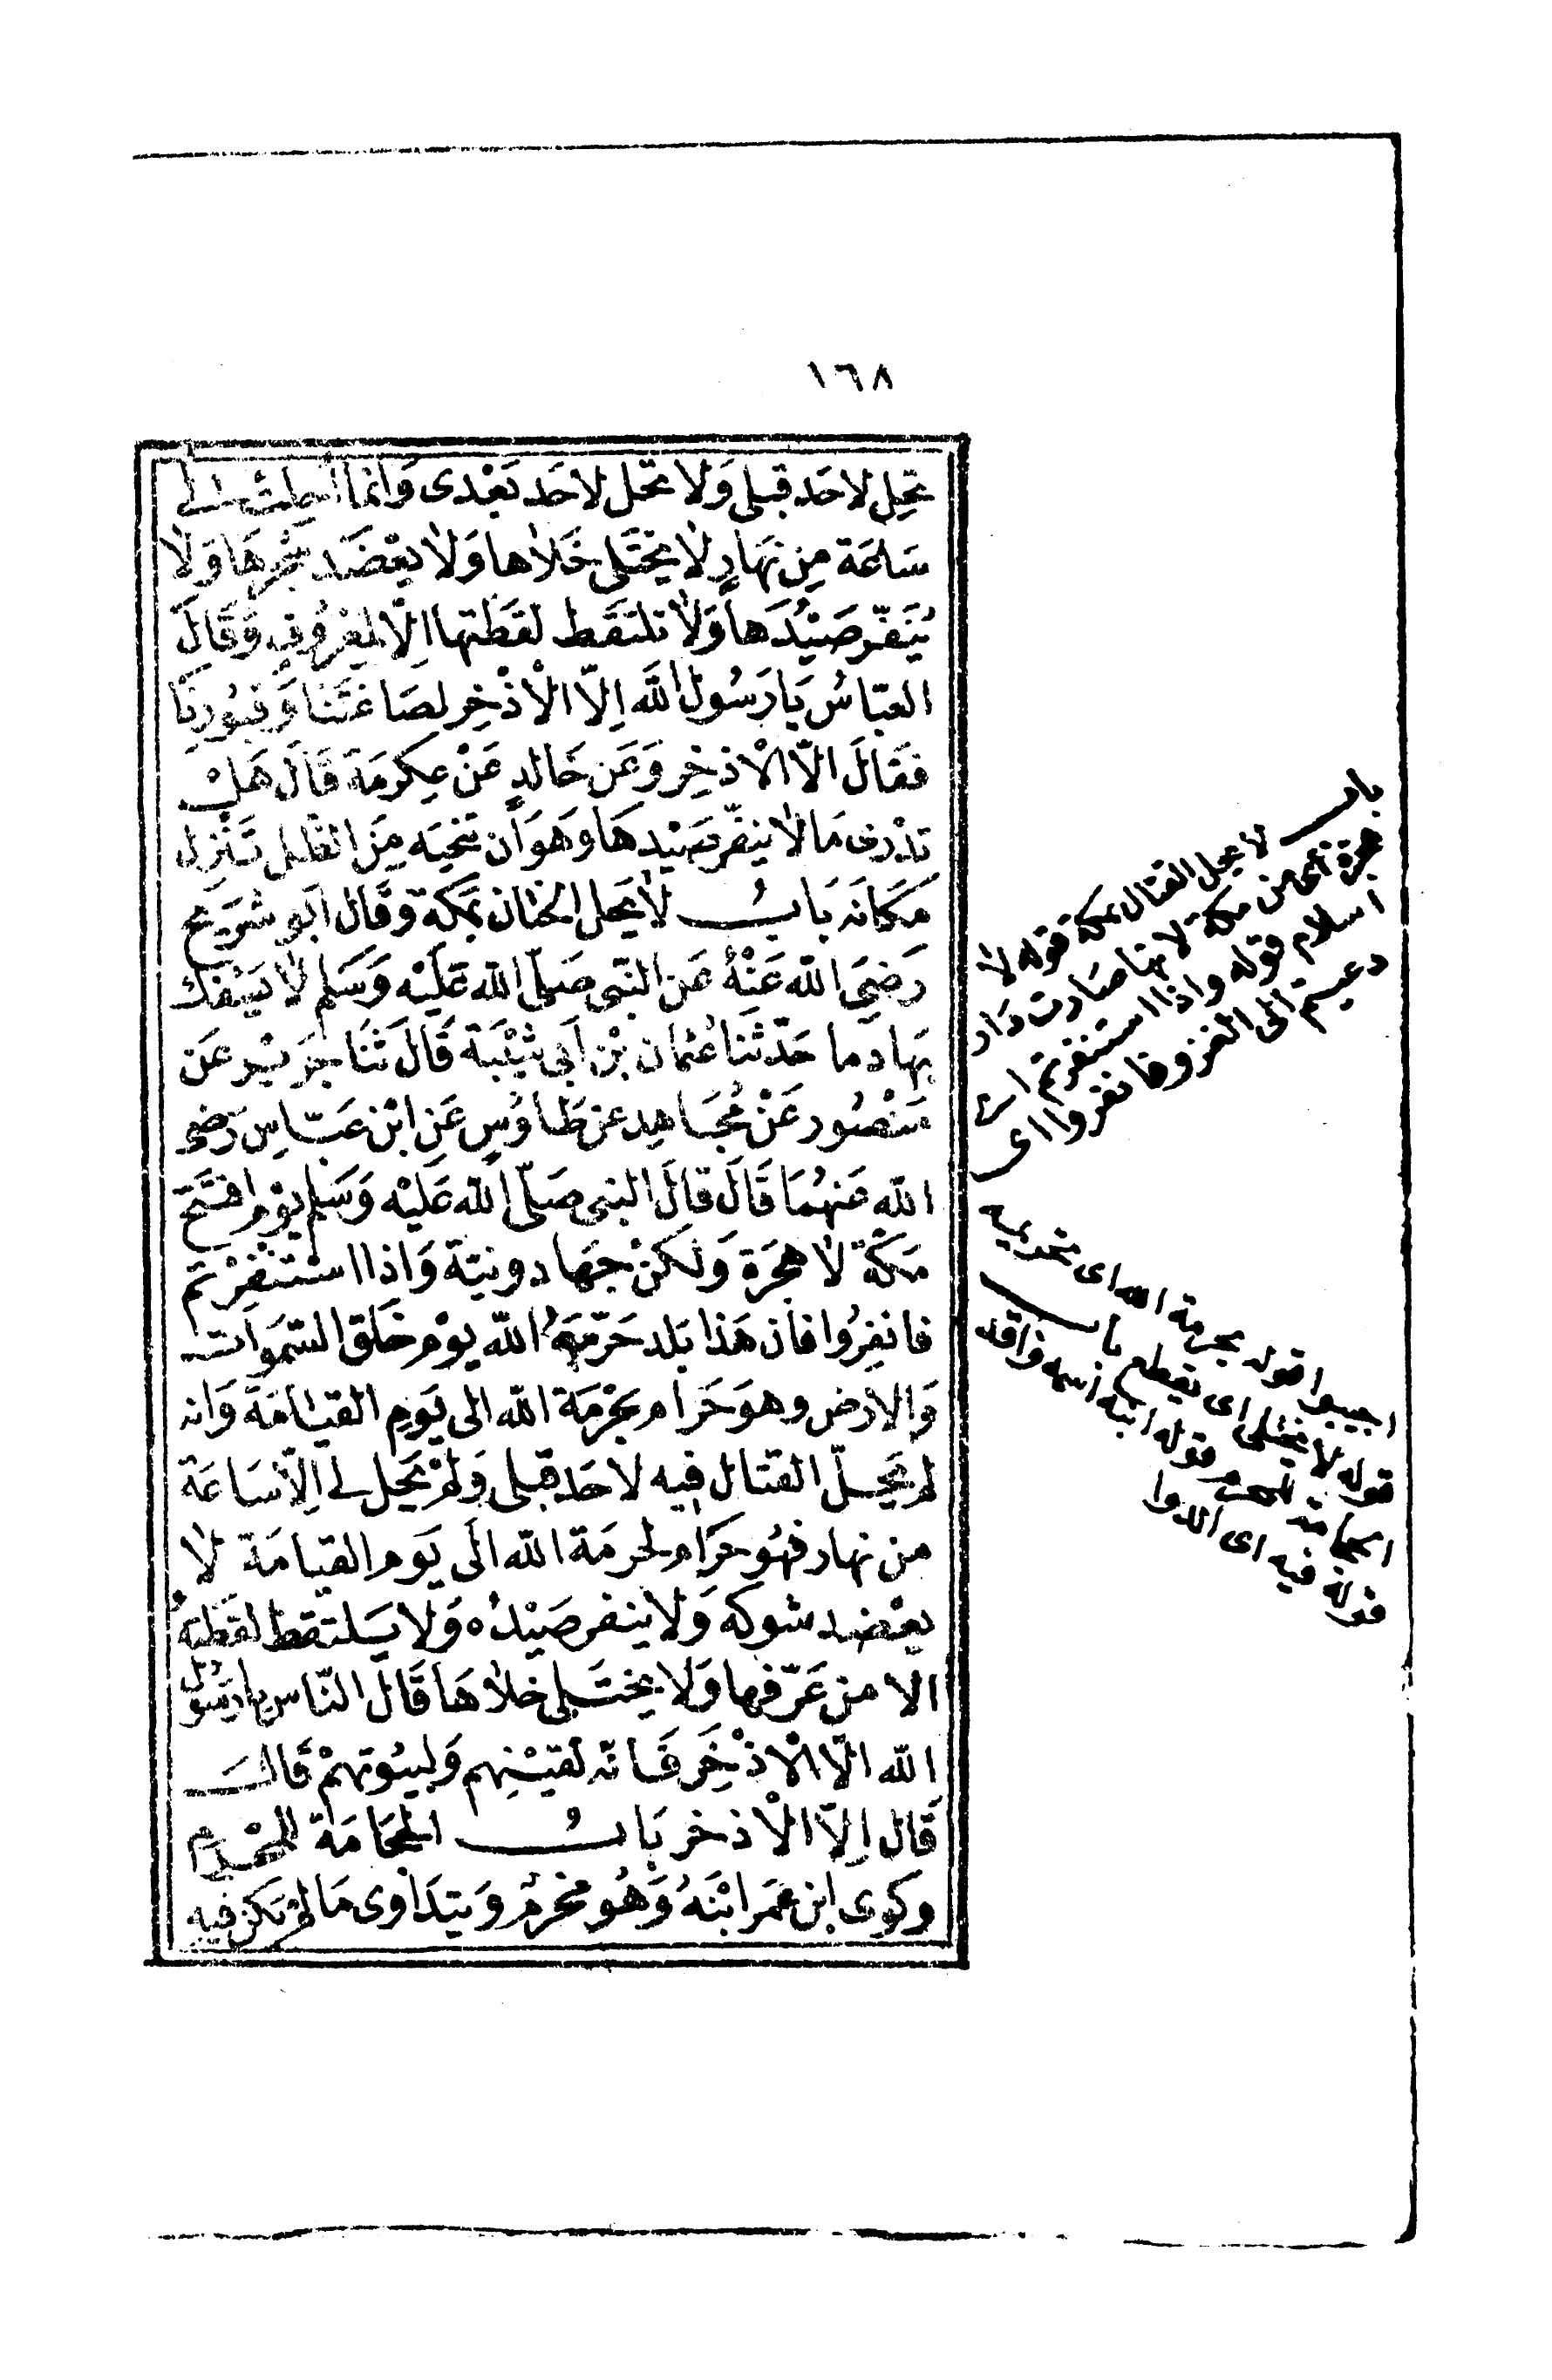 ١٦٨
تحل لاحد قبلى وَلا تحل لاحَد بَعْدى وَانما احلت لى
سَاعَة مِن نهَارٍ لا يختَلى خَلاها وَلا يعْضَد شجرهَا وَلا
يُنَفّر صَيْدَها وَلا تلتَقَط لقَطَتها اِلّا لمِعْرُوفٍ وَقَالَ
العبّاسُ يَا رَسُول الله اِلّا الْاذْخِر لصَاغَتنا وَقبُورنَا
فقالَ الّا الْاذخِر وَعَن خَالدٍ عَنْ عِكرمَة قَالَ هَلْ
تدْرى مَا لا ينفّر صَيْدهَا وهَوَ اَن تنحيَه مِنَ الظل تنْزل
مَكانَه بَابُ لا يَحل القتال بمَكة وقَال اَبو شرَيح
رَضىَ الله عَنْهُ عَن النّبى صَلّى الله عَلَيْه وَسَلم لا يَسْفك
بهَا دما حَدّثنَا عُثمان بْن اَبى شيْبَة قَالَ ثَنَا جَريْر عَن
مَنْصُور عَنْ مُجَاهِد عن طَاوُسٍ عَنِ ابْن عَبّاسٍ رَضى
الله عَنهُمَا قَالَ قالَ النبى صَلّى الله عَليْه وَسَلم يوْم افتَتح
مَكّة لا هجْرَة وَلكنْ جهَاد ونيّة وَاِذا اسْتنْفِرْتم
فانفِرُوا فان هَذا بَلد حَرّمَهُ الله يوْم خَلَق السّموَات
وَالارْض وهوَ حَرام بحُرْمَة الله الى يَومِ القيَامَة وَانه
لم يحِلّ القتال فيه لاحَد قبلى وَلمْ يَحِل لى اِلّا سَاعَة
من نهار فهُو حَرَام لحرمَة الله الَى يَوم القيامَة لا
يعْضد شوكه وَلا ينفر صَيْدُه وَلا يَلتقط لقَطتهُ
الا من عَرّفها وَلا يختَلى خلاهَا قَال النّاس يا رَسُول
الله الّا الْاذْخَر فَانّه لقيْنِهم وَلبيُوتهمْ قَالَ
قَال اِلّا الْاذخر بَابُ الحجَامَة للمحْرم
وكوى ابن عُمَر ابْنَهُ وَهُو محْرمٌ وَيتدَاوى مَا لمْ يَكن فيه
باب لا يحل القتال بمكة قوله لا
هجرة اى من مكة لانها صارت دَار
اسلام قوله واذا استنفرتم اى
دعيتم الى الغزو فانفروا اى
اجيبوا قوله بحرمة الله اى بتحريمه
قوله لا يختلى اى يقطع باب
الحجامة للمحرم قوله ابنه اسمه واقد
قوله فيه اى الدوا